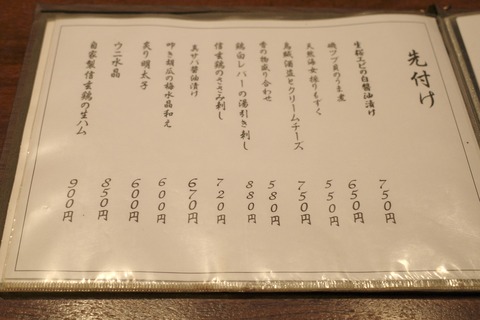 先付け
生桜エビの白醤油漬け 750円
磯ツブ貝のうま煮 650円
天然海女採りもずく 550円
烏賊酒盗とクリームチーズ 750円
香の物盛り合わせ 580円
鶏白レバーの湯引き刺し 880円
信玄鶏のささみ刺し 720円
真サバ醤油漬け 670円
叩き胡瓜の梅水晶和え 600円
炙り明太子 600円
ウニ水晶 850円
自家製信玄鶏の生ハム 900円